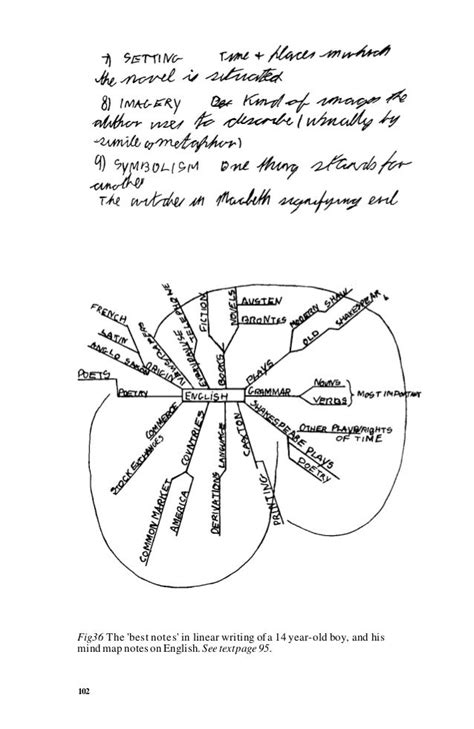 7) SETTING Time + places in which
the novel is situated
8) IMAGERY Kind of images the
author uses to describe (usually by
simile or metaphor)
9) SYMBOLISM One thing stands for
another
The witches in Macbeth signifying evil
FRENCH
LATIN
ANGLO SAXON
ORIGIN
NEWSPAPERS
EVERYDAY USE TELEPHONE
FICTION
NOVELS
AUSTEN
BRONTES
BOOKS
PLAYS
MODERN SHAW
OLD SHAKESPEAR
POETS
POETRY
ENGLISH
GRAMMAR
NOUNS
VERBS
MOST IMPORTANT
COMMERCE
STOCK EXCHANGES
COUNTRIES
COMMON MARKET
AMERICA
LANGUAGE
DERIVATIONS
CAXTON
PRINTING
SHAKESPEARE PLAYS
POETRY
OTHER PLAYWRIGHTS
OF TIME
Fig36 The 'best notes' in linear writing of a 14 year-old boy, and his
mind map notes on English. See textpage 95.
102